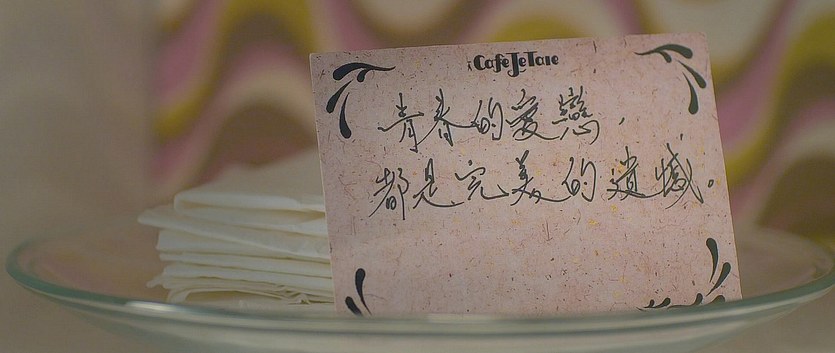 iCafeJeTaie
青春的愛戀，
都是完美的遺憾。